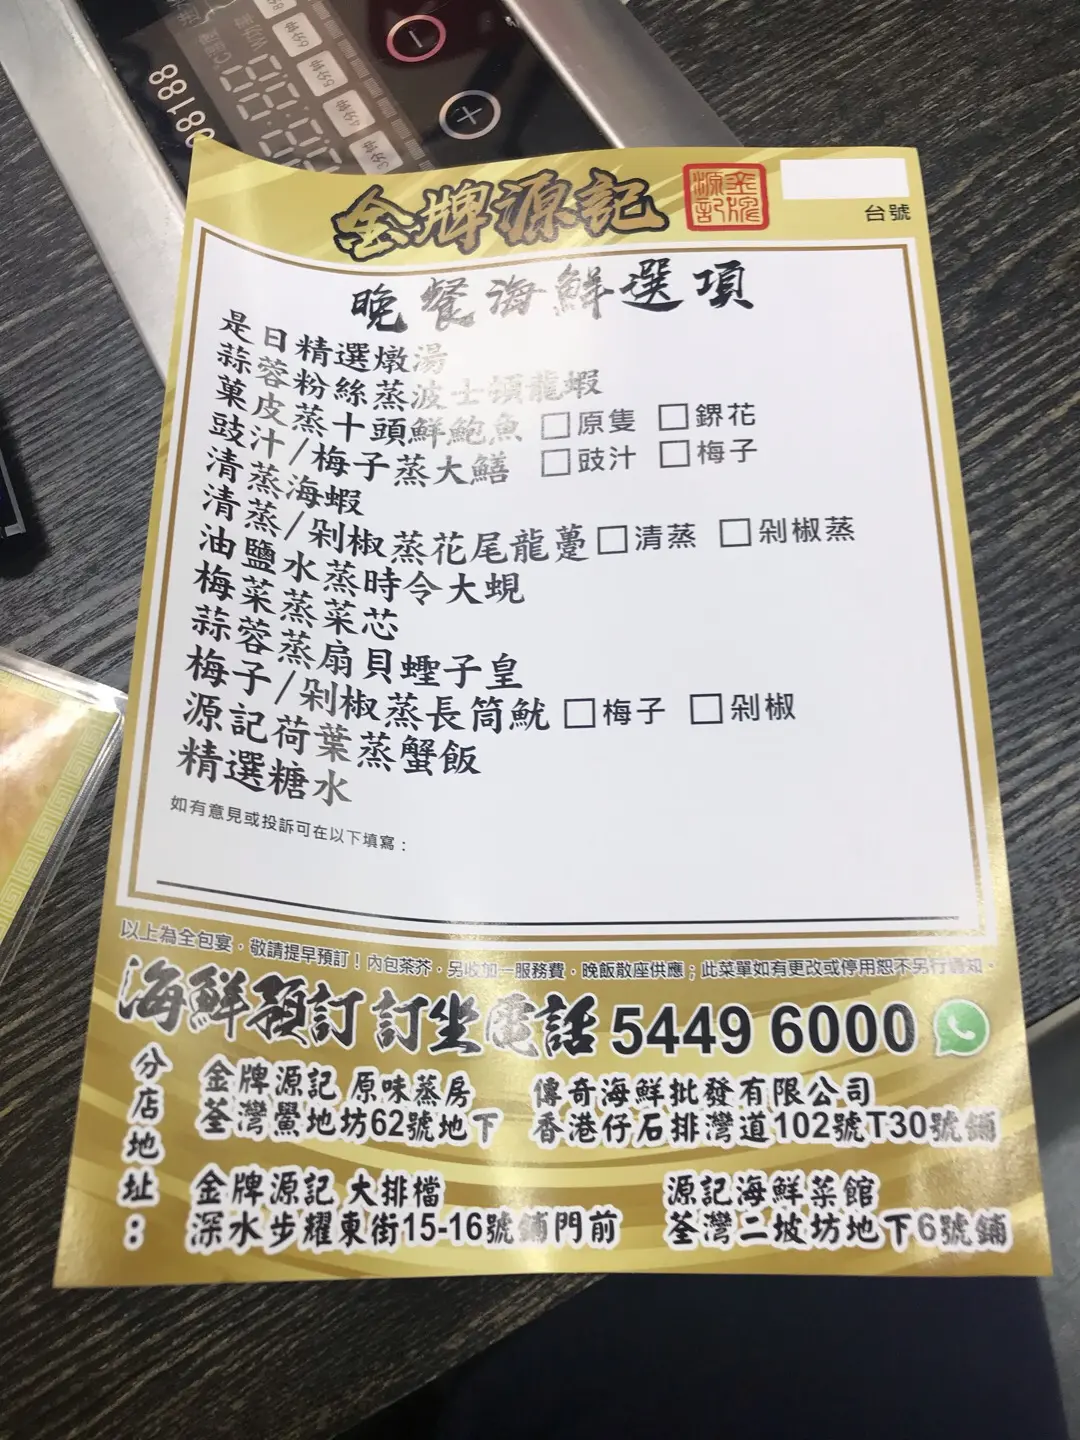 98188
3分鐘
4分鐘
5分鐘
6分鐘
金牌源記
金牌源記
台號
晚餐海鮮選項
是日精選燉湯
蒜蓉粉絲蒸波士頓龍蝦
菓皮蒸十頭鮮鮑魚 □原隻 □鎅花
豉汁/梅子蒸大鱔 □豉汁 □梅子
清蒸海蝦
清蒸/剁椒蒸花尾龍躉 □清蒸 □剁椒蒸
油鹽水蒸時令大蜆
梅菜蒸菜芯
蒜蓉蒸扇貝蟶子皇
梅子/剁椒蒸長筒魷 □梅子 □剁椒
源記荷葉蒸蟹飯
精選糖水
如有意見或投訴可在以下填寫：
以上為全包宴，敬請提早預訂！內包茶芥，另收加一服務費，晚飯散座供應；此菜單如有更改或停用恕不另行通知。
海鮮預訂 訂坐電話 5449 6000
分店地址：
金牌源記 原味蒸房
荃灣鱟地坊62號地下
傳奇海鮮批發有限公司
香港仔石排灣道102號T30號鋪
金牌源記 大排檔
深水步耀東街15-16號鋪門前
源記海鮮菜館
荃灣二坡坊地下6號鋪